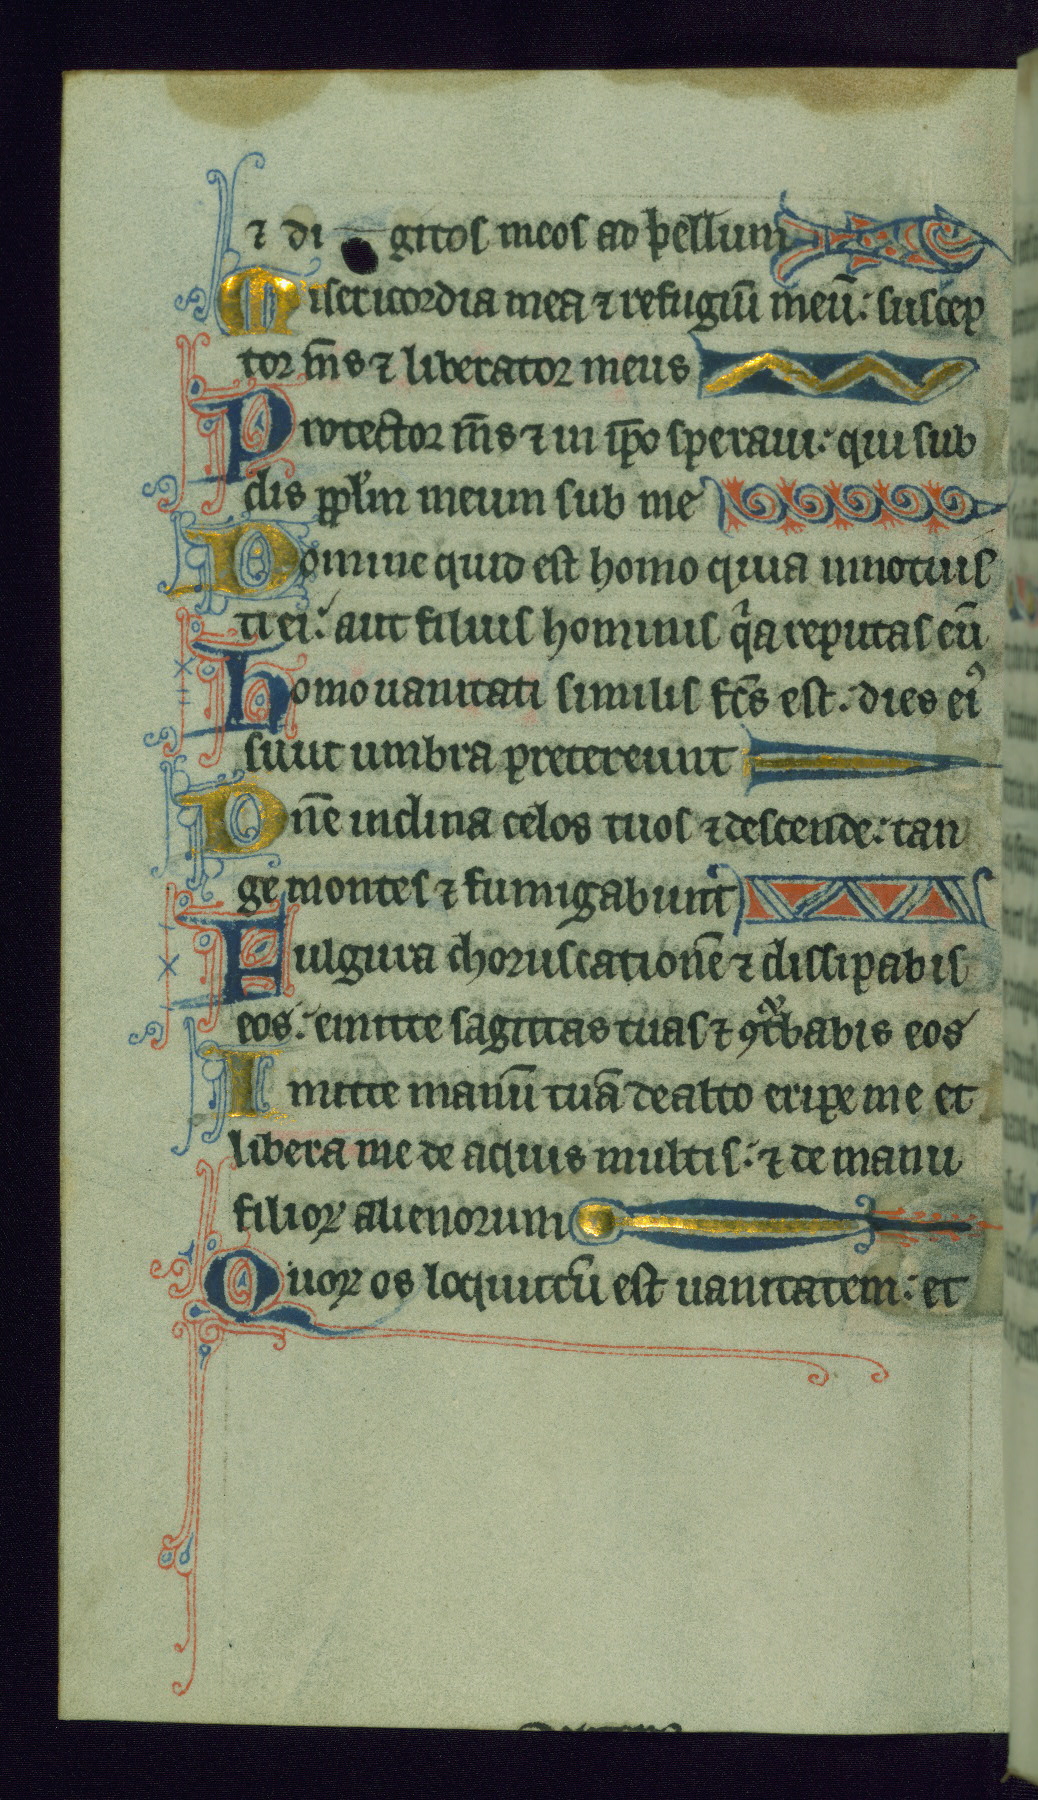 ⁊ di gitos meos ad bellum
Misericordia mea ⁊ refugiū meū: suscep
tor m̄s ⁊ liberator meus
Protector m̄s ⁊ in ip̄o speraui: qui sub
dis pp̄lm meum sub me
Domine quid est homo quia innotuis
ti ei: aut filius hominis qͥa reputas eū
homo uanitati similis fc̄s est: dies eiꝰ
sunt umbra pretereunt
Dn̄e inclina celos tuos ⁊ descende: tan
ge montes ⁊ fumigabunt᷑
Fulgura choruscationē ⁊ dissipabis
eos: emitte sagittas tuas ⁊ ꝯtͬbabis eos
Imitte manū tuā de alto eripe me et
libera me de aquis multis: ⁊ de manu
filioꝝ alienorum
Quoꝝ os loquutū est uanitatem: et